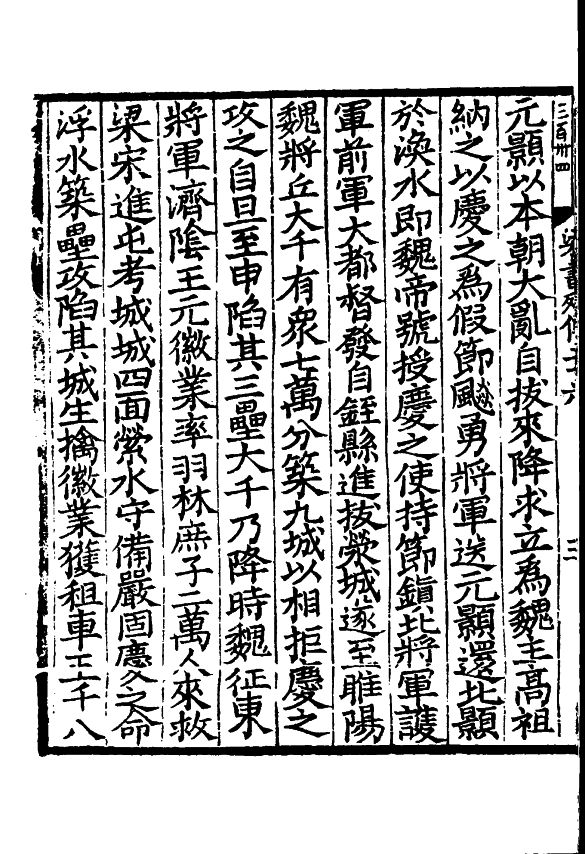 三百卅四
梁書列傳二十六
三
元顥以本朝大亂自拔來降求立爲魏主高祖
納之以慶之爲假節飈勇將軍送元顥還北顥
於渙水即魏帝號授慶之使持節鎮北將軍護
軍前軍大都督發自銍縣進拔滎城遂至睢陽
魏將丘大千有衆七萬分築九城以相拒慶之
攻之自旦至申陷其三壘大千乃降時魏征東
將軍濟陰王元徽業率羽林庶子二萬人來救
梁宋進屯考城城四面縈水守備嚴固慶之命
浮水築壘攻陷其城生擒徽業獲租車七千八